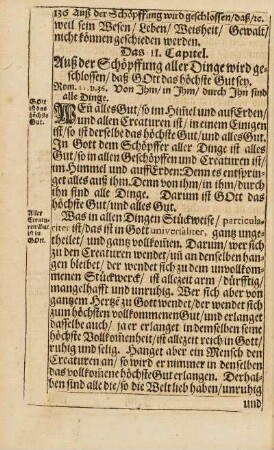 136 Auß der Schöpffung wird geschlossen/ daß/ ꝛc.
weil sein Wesen/ Leben/ Weisheit/ Gewalt/
nicht können geschieden werden.
Das 11. Capitel.
Auß der Schöpffung aller Dinge wird ge-
schlossen/ daß GOtt das höchste Gut sey.
Rom. 11. v. 36. Von Ihm/ in Ihm/ durch Ihn sind
alle Dinge.
GOtt
ist das
höchste
Gut.
WEn alles Gut/ so im Him̃el und auf Erden/
und allen Creaturen ist/ in einem Einigen
ist/ so ist derselbe das höchste Gut/ und alles Gut.
In Gott dem Schöpffer aller Dinge ist alles
Gut/ so in allen Geschöpffen und Creaturen ist/
im Himmel und auff Erden: Denn es entsprin-
get alles auß ihm. Denn von ihm/ in ihm/ durch
ihn sind alle Dinge. Darum ist GOtt das
höchste Gut/ und alles Gut.
Aller
Creatu-
ren Gut
ist in
GOtt.
Was in allen Dingen Stückweise/ particula-
riter ist/ das ist in Gott univerſaliter, gantz unge-
theilet/ und gantz vollkom̃en. Darum/ wer sich
zu den Creaturen wendet/ uñ an denselben han-
gen bleibet/ der wendet sich zu dem unvollkom-
menen Stückwerck/ ist allezeit arm/ dürfftig/
mangelhafft und unruhig. Wer sich aber von
gantzem Hertzẽ zu Gott wendet/ der wendet sich
zum höchsten vollkommenen Gut/ und erlanget
dasselbe auch/ ja er erlanget in demselben seine
höchste Vollkom̃enheit/ ist allezeit reich in Gott/
ruhig und selig. Hanget aber ein Mensch den
Creaturen an/ so wird er nimmer in denselben
das vollkom̃ene höchste Gut erlangen. Derhal-
ben sind alle die/ so die Welt lieb haben/ unruhig
und